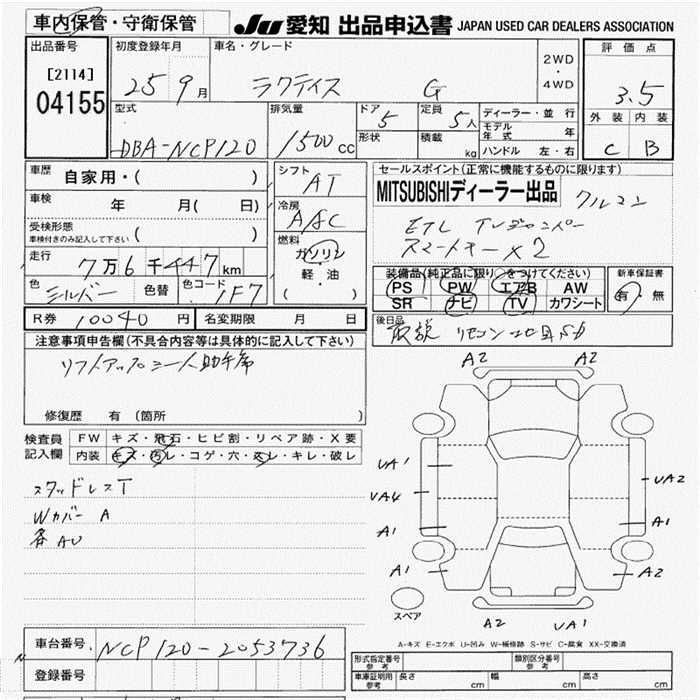 車内保管・守衛保管 JU 愛知 出品申込書 JAPAN USED CAR DEALERS ASSOCIATION
出品番号 初度登録年月 車名・グレード 評価点
[2114] 25 9月 ラクティス G 2WD・4WD 3.5
04155
型式 排気量 ドア 定員 ディーラー・並行 外装 内装
DBA-NCP120 1500cc 5 5人 モデル年式 年 C B
形状 積載 kg ハンドル 左・右
車歴 自家用・( ) シフト AT セールスポイント(正常に機能するものに限ります)
車検 年 月( 日) 冷房 A/C MITSUBISHIディーラー出品
受検形態 車検付きのみ記入して下さい ( ) 燃料 ETC
走行 7万6千447km ガソリン スマートキー×2
軽・油
( )
色 シルバー 色替 色コード 1F7
装備品(純正品に限り○をつけてください) 新車保証書
PS PW エアB AW 有・無
SR ナビ TV カワシート
R券 10040円 名変期限 月 日 後日品
取説 リモコン
注意事項申告欄(不具合内容等は具体的に記入して下さい)
リフトアップシート助手席
修復歴 有 (箇所 )
検査員記入欄 FW キズ・飛石・ヒビ割・リペア跡・X要
内装 キズ・汚レ・コゲ・穴・スレ・キレ・破レ
スタッドレスT
Wカバー A
各AU
A2 A2
UA1
UA4 UA2
A1 A1
A1 A2
スペア A2 UA1
A-キズ E-エクボ U-凹み W-補修跡 S-サビ C-腐食 XX-交換済
車台番号 NCP120-2053736
登録番号
形式指定番号 参考 類別区分番号 参考
車庫証明用 参考 長さ cm 幅 cm 高さ cm